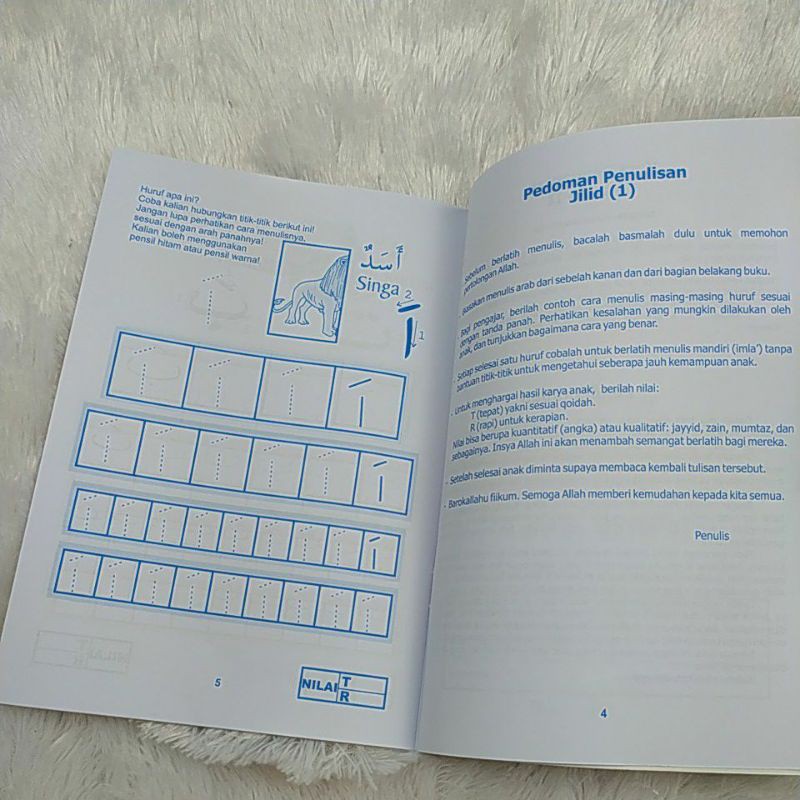 Pedoman Penulisan
Jilid (1)
Sebelum berlatih menulis, bacalah basmalah dulu untuk memohon
pertolongan Allah.
Biasakan menulis arab dari sebelah kanan dan dari bagian belakang buku.
Bagi pengajar, berilah contoh cara menulis masing-masing huruf sesuai
dengan tanda panah. Perhatikan kesalahan yang mungkin dilakukan oleh
anak, dan tunjukkan bagaimana cara yang benar.
- Setiap selesai satu huruf cobalah untuk berlatih menulis mandiri (imla') tanpa
bantuan titik-titik untuk mengetahui seberapa jauh kemampuan anak.
- Untuk menghargai hasil karya anak, berilah nilai:
T (tepat) yakni sesuai qoidah.
R (rapi) untuk kerapian.
Nilai bisa berupa kuantitatif (angka) atau kualitatif: jayyid, zain, mumtaz, dan
sebagainya. Insya Allah ini akan menambah semangat berlatih bagi mereka.
- Setelah selesai anak diminta supaya membaca kembali tulisan tersebut.
- Barokallahu fiikum. Semoga Allah memberi kemudahan kepada kita semua.
Penulis
4
Huruf apa ini?
Coba kalian hubungkan titik-titik berikut ini!
Jangan lupa perhatikan cara menulisnya,
sesuai dengan arah panahnya!
Kalian boleh menggunakan
pensil hitam atau pensil warna!
أَسَدٌ
Singa
2
1
NILAI
T
R
5